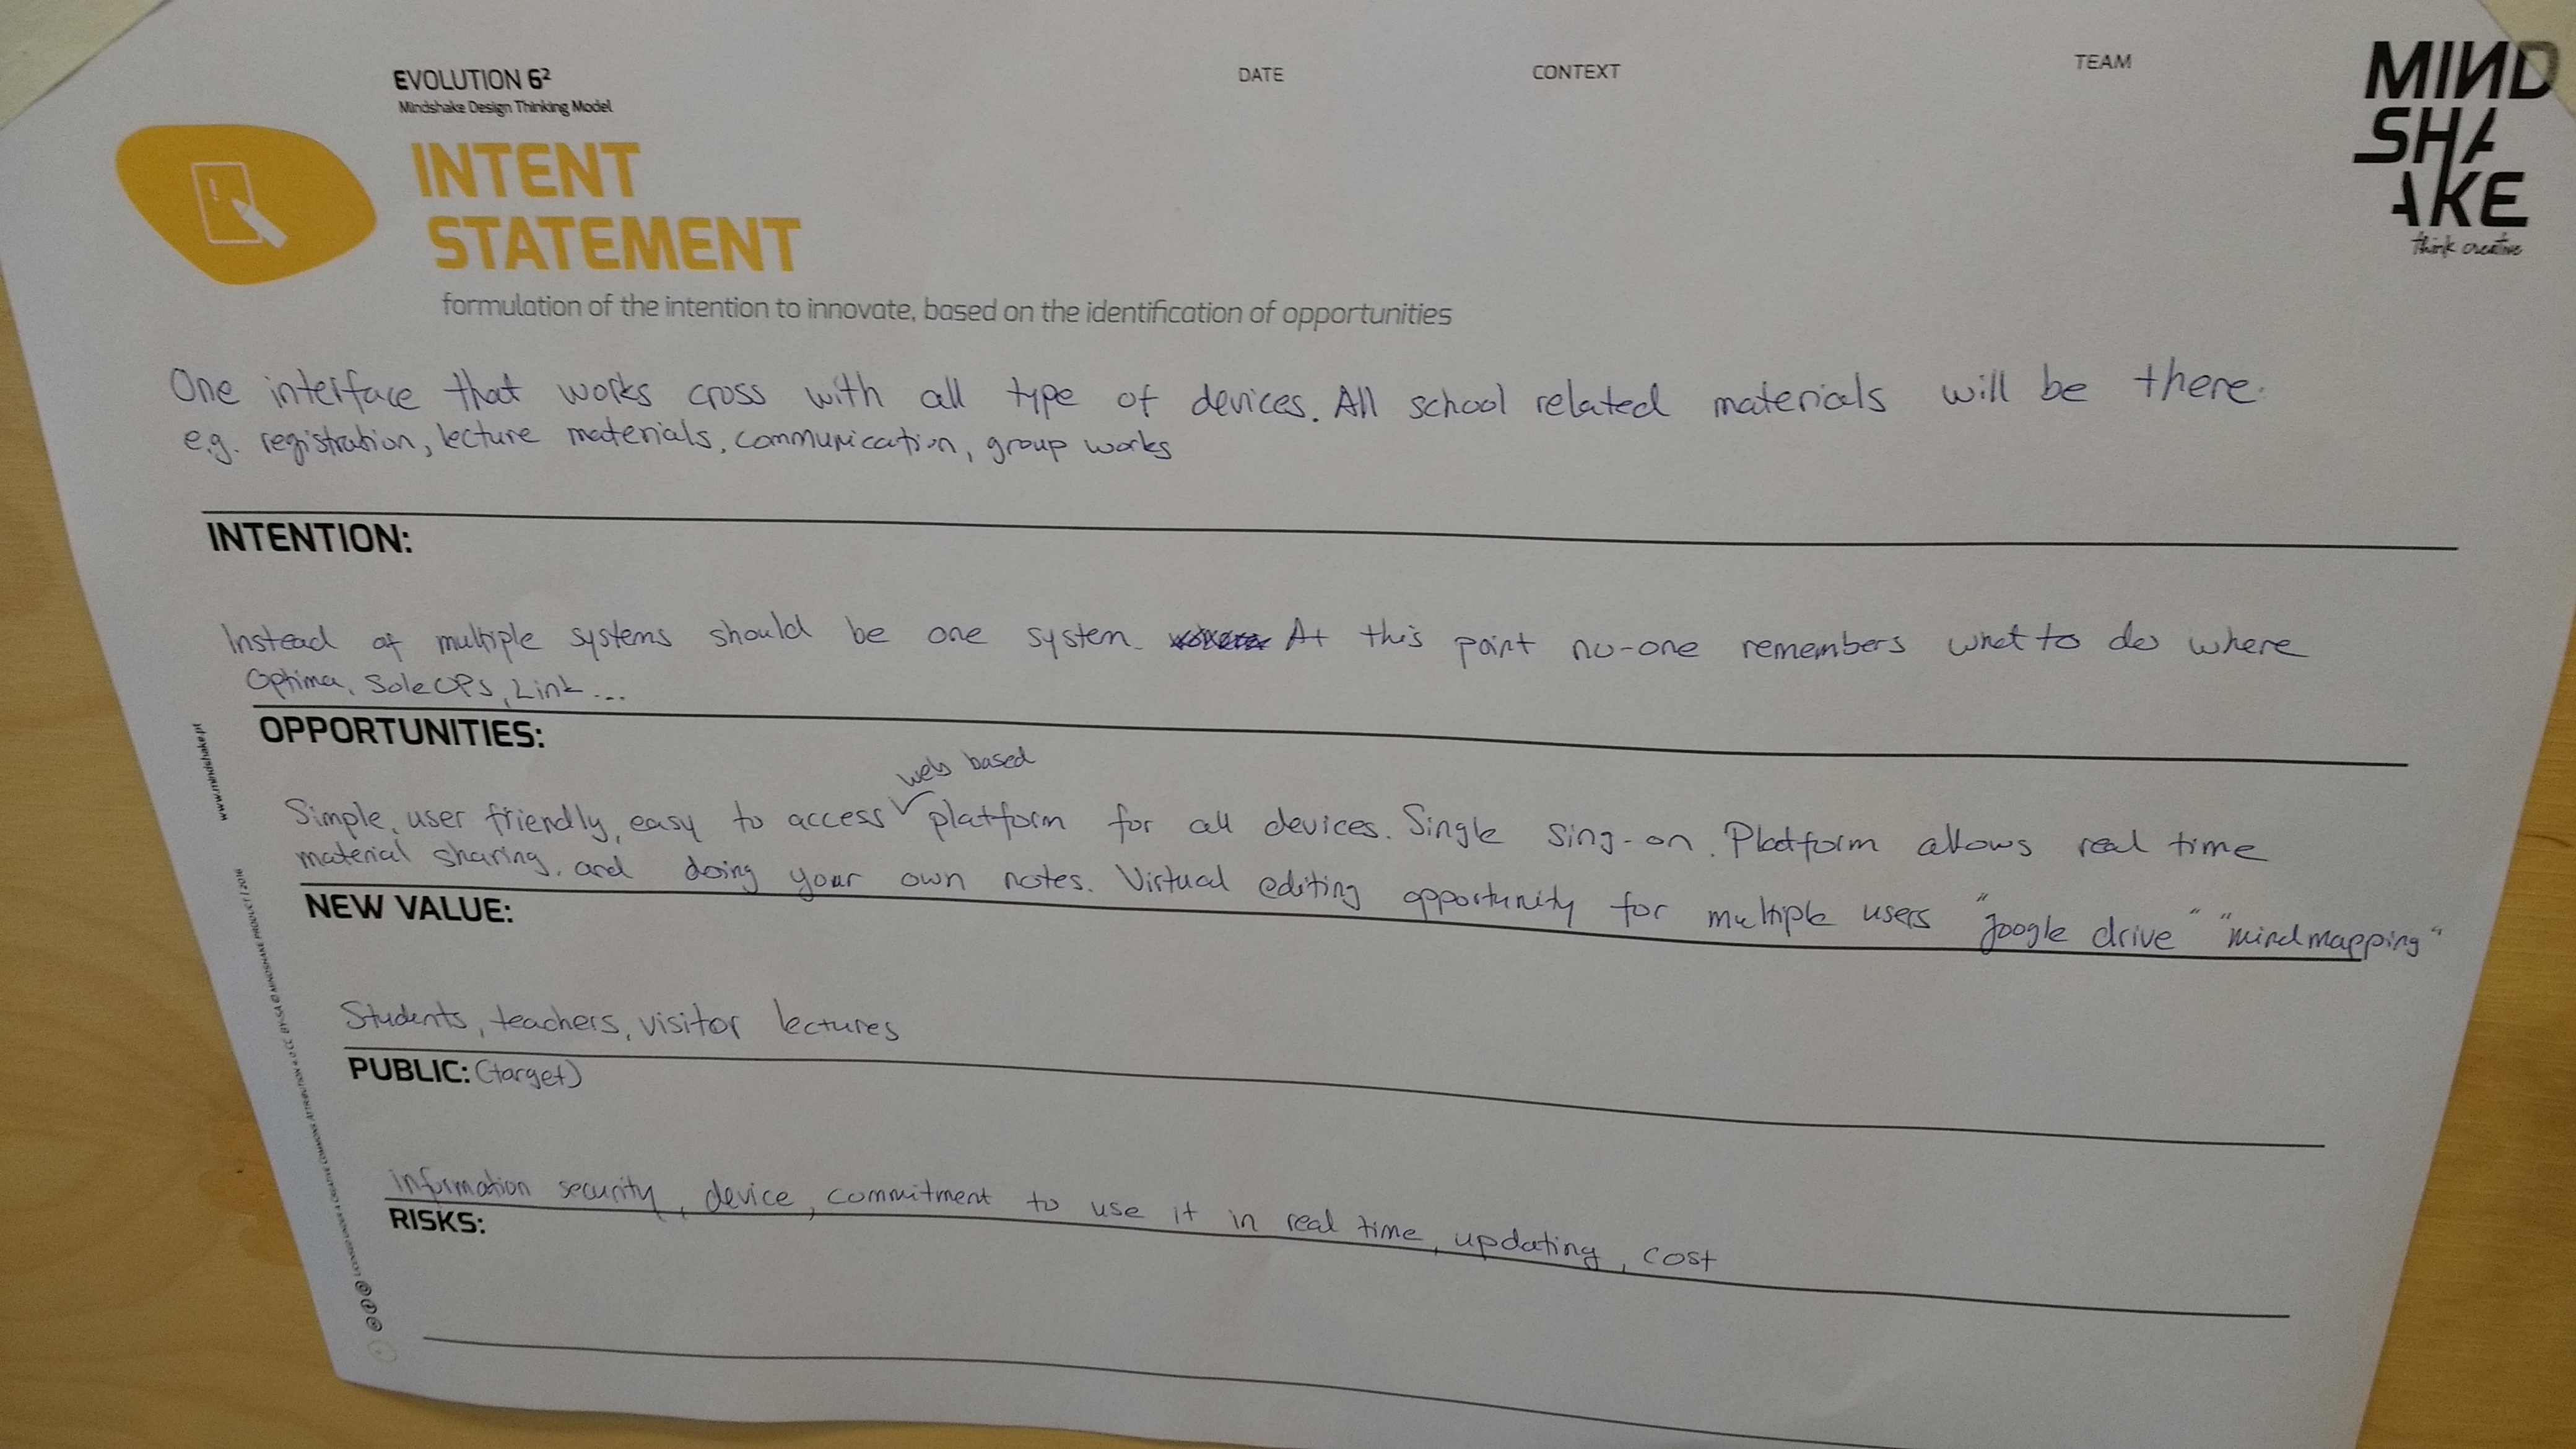 EVOLUTION 6²
Mindshake Design Thinking Model
DATE
CONTEXT
TEAM
MIND
SHA
AKE
think creative
INTENT
STATEMENT
formulation of the intention to innovate, based on the identification of opportunities
One interface that works cross with all type of devices. All school related materials will be there.
e.g. registration, lecture materials, communication, group works
INTENTION:
Instead of multiple systems should be one system. At this point no-one remembers what to do where
Optima, SoleOPS, Link...
OPPORTUNITIES:
web based
Simple, user friendly, easy to access platform for all devices. Single sing-on. Platform allows real time
material sharing, and doing your own notes. Virtual editing opportunity for multiple users "google drive" "mindmapping"
NEW VALUE:
Students, teachers, visitor lectures
PUBLIC: (target)
information security, device, commitment to use it in real time, updating, cost
RISKS:
www.mindshake.pt
LICENSED UNDER A CREATIVE COMMONS ATTRIBUTION 4.0 CC BY-SA @ MINDSHAKE PRODUCT | 2016